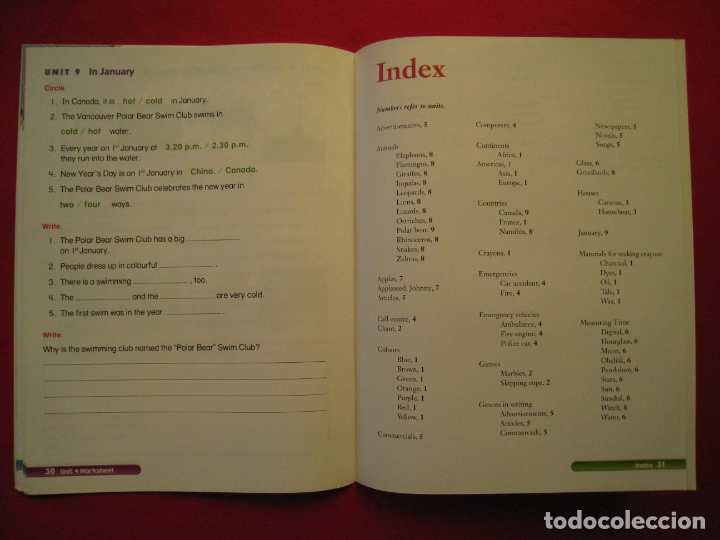 UNIT 9 In January
Circle.
1. In Canada, it is hot / cold in January.
2. The Vancouver Polar Bear Swim Club swims in
cold / hot water.
3. Every year on 1st January at 3.20 p.m. / 2.30 p.m.
they run into the water.
4. New Year's Day is on 1st January in China. / Canada.
5. The Polar Bear Swim Club celebrates the new year in
two / four ways.
Write.
1. The Polar Bear Swim Club has a big ____________
on 1st January.
2. People dress up in colourful ____________ .
3. There is a swimming ____________ , too.
4. The ____________ and the ____________ are very cold.
5. The first swim was in the year ____________ .
Write.
Why is the swimming club named the "Polar Bear" Swim Club?
30 Unit 9 Worksheet
Index
Numbers refer to units.
Advertisements, 5
Animals
Elephants, 8
Flamingos, 8
Giraffes, 8
Impalas, 8
Leopards, 8
Lions, 8
Lizards, 8
Ostriches, 8
Polar bear, 9
Rhinoceros, 8
Snakes, 8
Zebras, 8
Apples, 7
Appleseed, Johnny, 7
Articles, 5
Call centre, 4
Chant, 2
Colours
Blue, 1
Brown, 1
Green, 1
Orange, 1
Purple, 1
Red, 1
Yellow, 1
Commercials, 5
Computers, 4
Continents
Africa, 1
Americas, 1
Asia, 1
Europe, 1
Countries
Canada, 9
France, 1
Namibia, 8
Crayons, 1
Emergencies
Car accident, 4
Fire, 4
Emergency vehicles
Ambulance, 4
Fire engine, 4
Police car, 4
Games
Marbles, 2
Skipping rope, 2
Genres in writing
Advertisements, 5
Articles, 5
Commercials, 5
Newspapers, 5
Novels, 5
Songs, 5
Glass, 6
Grasslands, 8
Houses
Caravan, 3
Houseboat, 3
January, 9
Materials for making crayons
Charcoal, 1
Dyes, 1
Oil, 1
Talc, 1
Wax, 1
Measuring Time
Digital, 6
Hourglass, 6
Moon, 6
Obelisk, 6
Pendulum, 6
Stars, 6
Sun, 6
Sundial, 6
Watch, 6
Water, 6
Index 31
todocoleccion.net